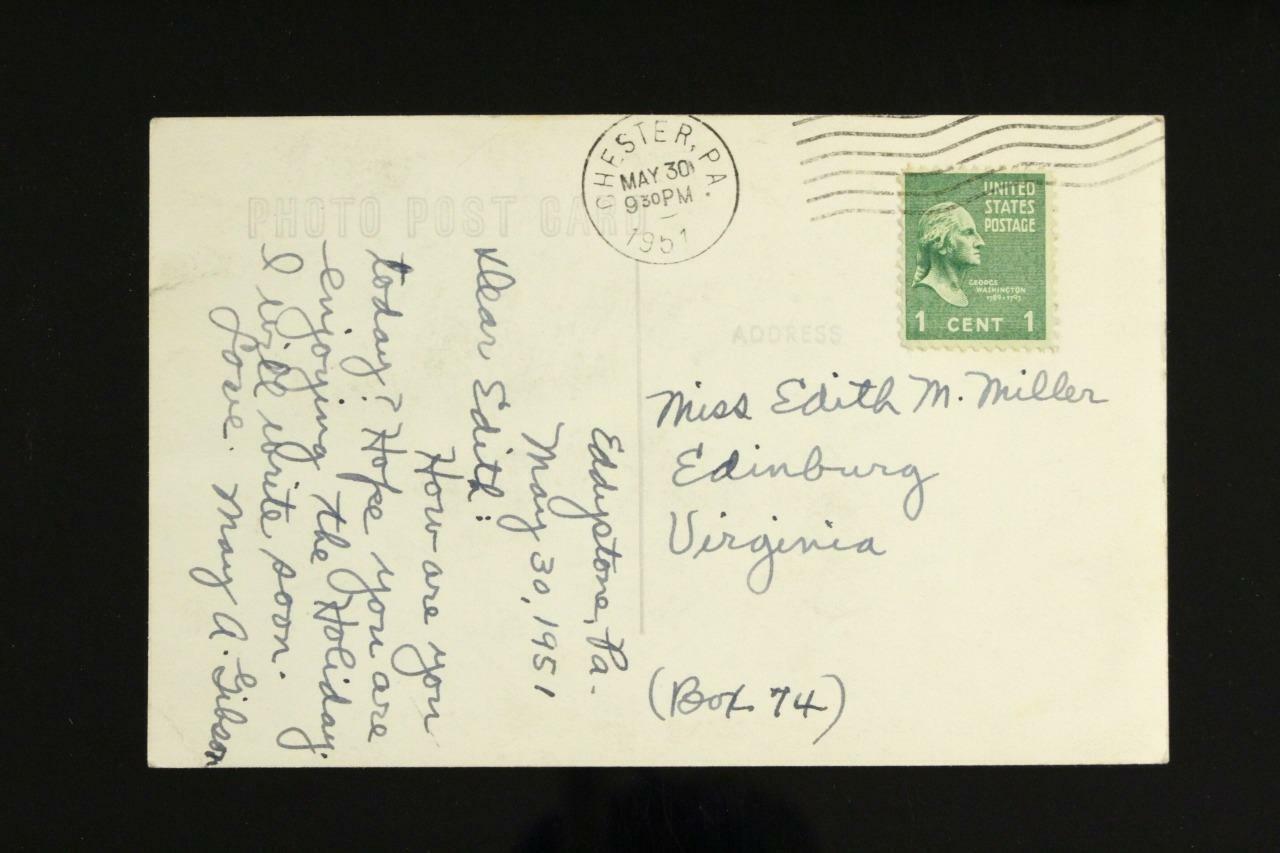 PHOTO POST CARD
CHESTER, PA.
MAY 30
930PM
1951
UNITED
STATES
POSTAGE
GEORGE
WASHINGTON
1789-1797
1 CENT 1
ADDRESS
Eddystone, Pa.
May 30, 1951
Dear Edith:
How are you
today? Hope you are
enjoying the Holiday.
I will write soon.
Love. May A. Gibson
Miss Edith M. Miller
Edinburg
Virginia
(Box 74)